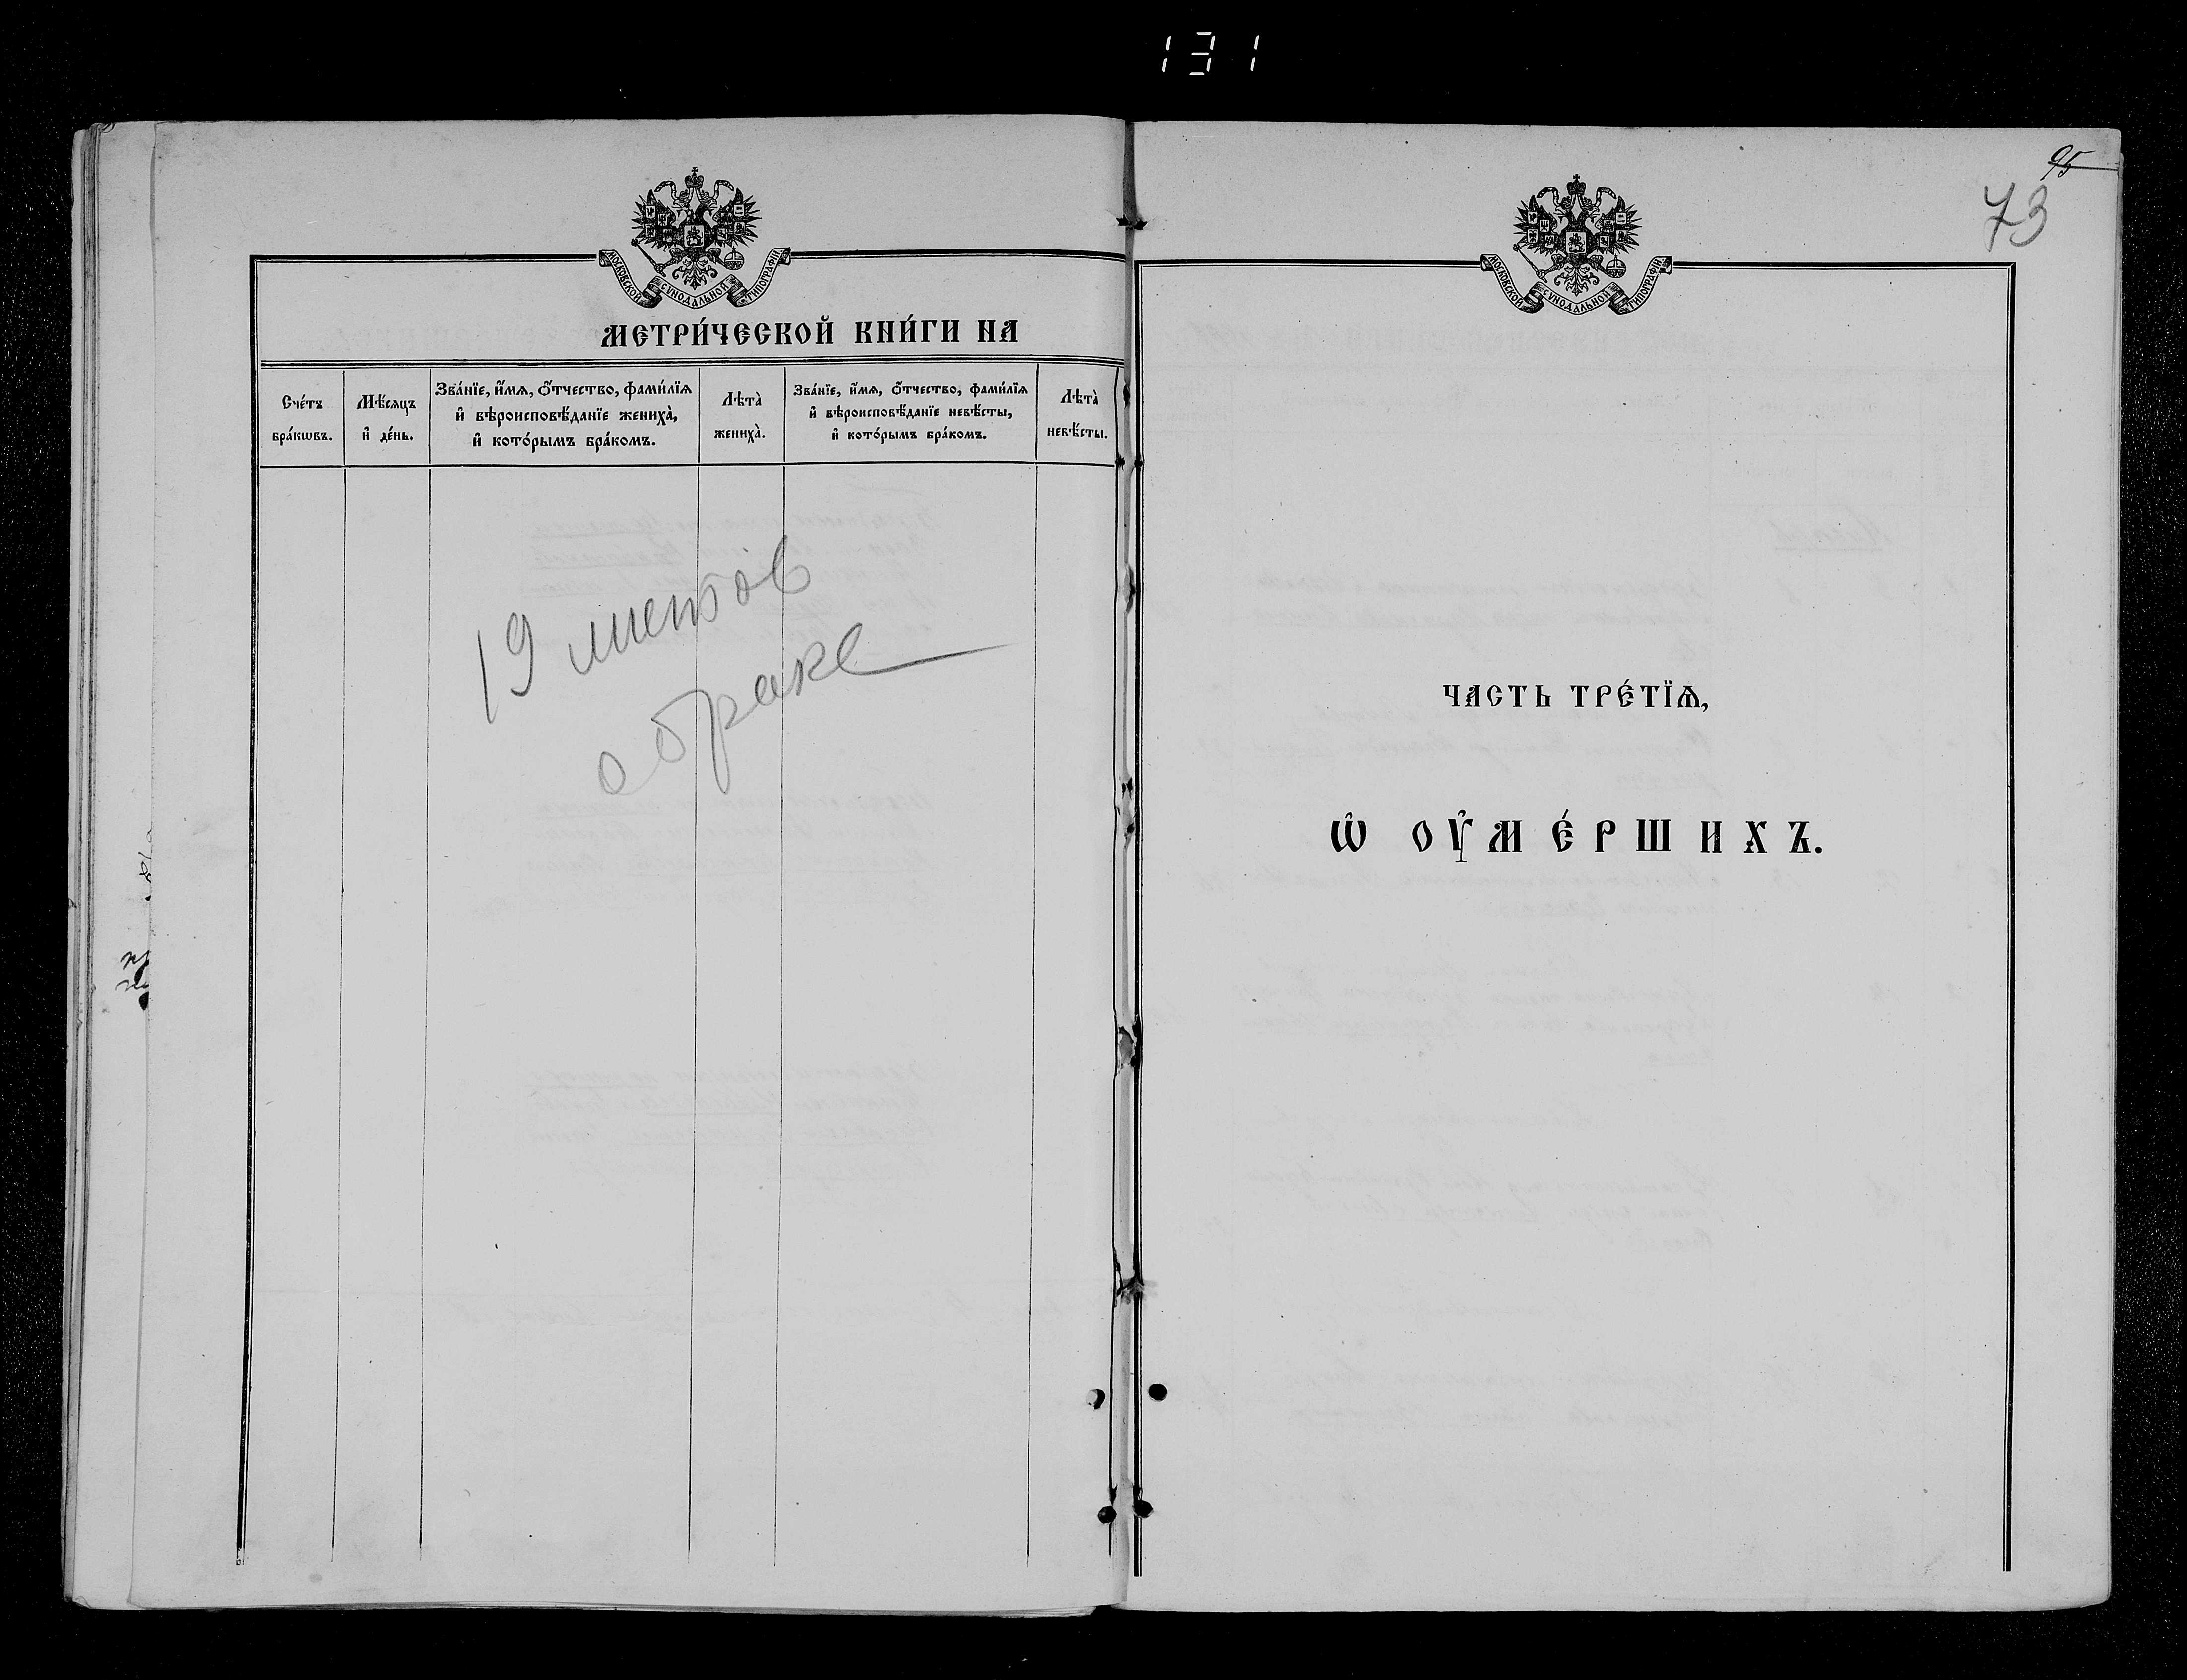 131
МОСКОВСКОЙ СѴНОДАЛЬНОЙ ТИПОГРАФІИ
МЕТРИ́ЧЕСКОЙ КНИ́ГИ НА
Сче́тъ бра́кѡвъ.
Мѣ́сяцъ и҆ де́нь.
Зва́нїе, и҆́мѧ, ѻ҆́тчество, фами́лїѧ
и҆ вѣроисповѣ́данїе жениха̀,
и҆ кото́рымъ бра́комъ.
Лѣта̀ жениха̀.
Зва́нїе, и҆́мѧ, ѻ҆́тчество, фами́лїѧ
и҆ вѣроисповѣ́данїе невѣ́сты,
и҆ кото́рымъ бра́комъ.
Лѣта̀ невѣ́сты.
19 листов
о браке
95
73
МОСКОВСКОЙ СѴНОДАЛЬНОЙ ТИПОГРАФІИ
ЧАСТЬ ТРЕ́ТЇѦ,
Ѡ҆ ОУ҆МЕ́РШИХЪ.